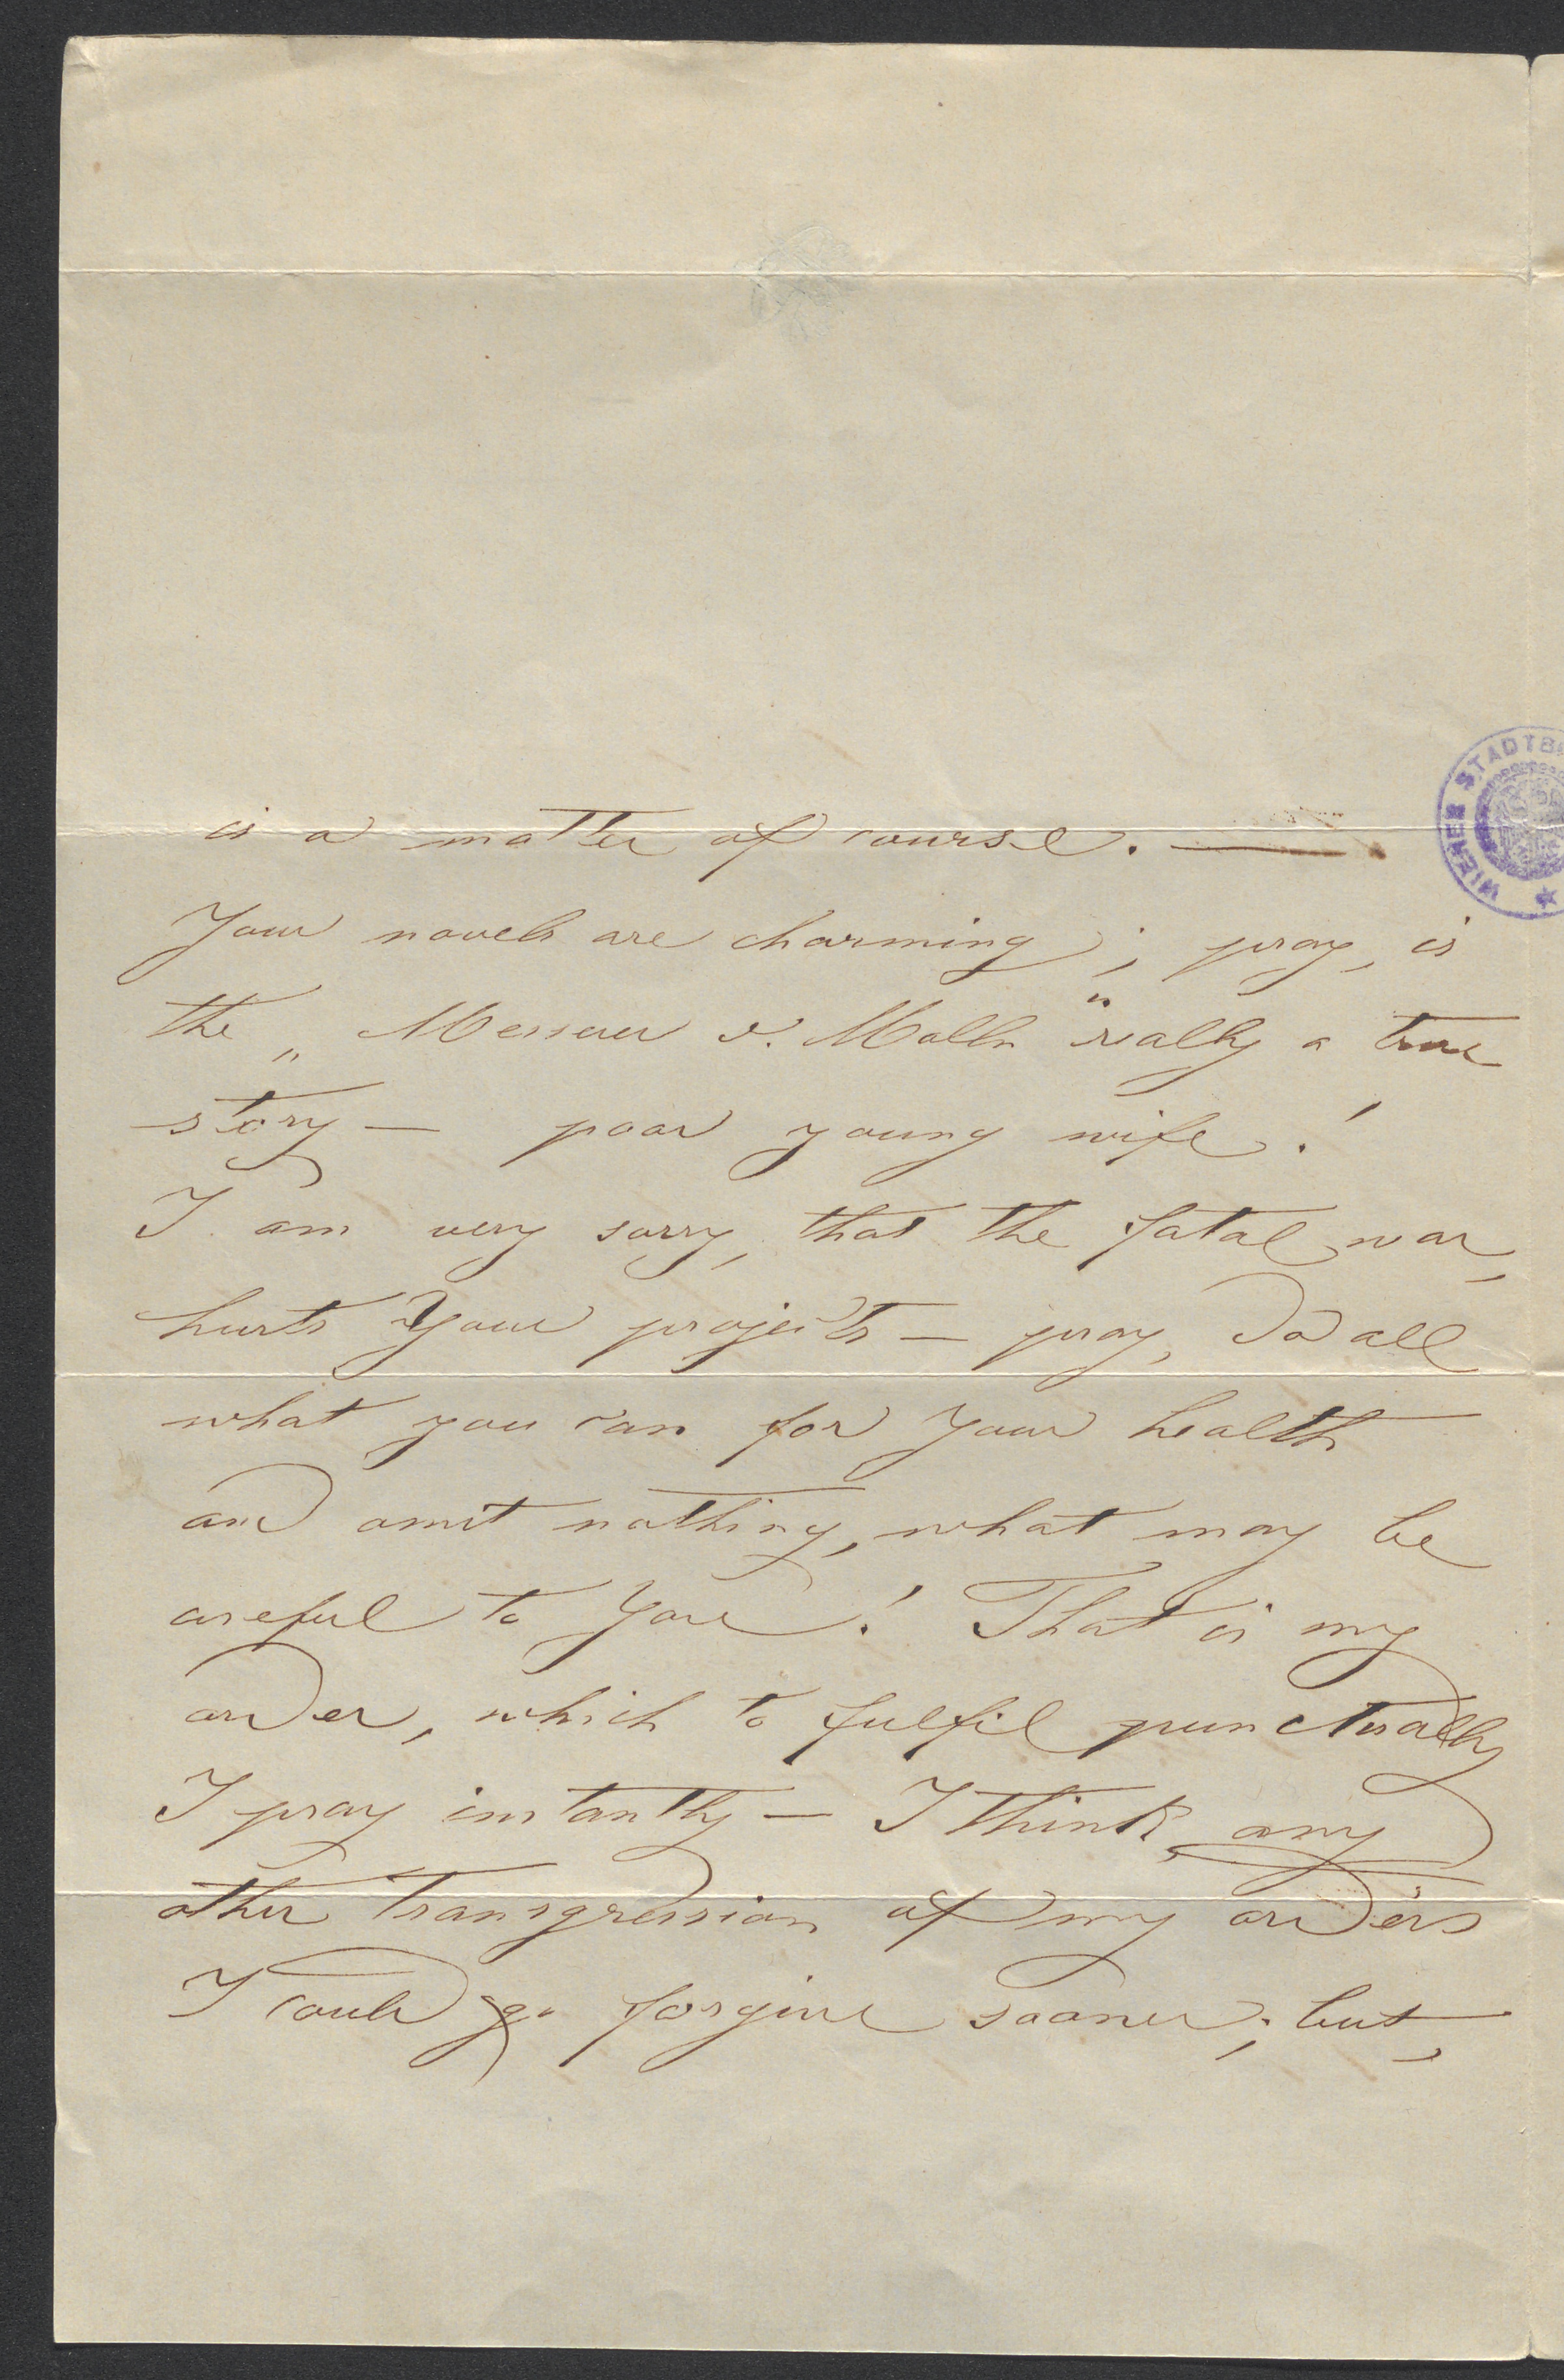 is a matter of course. —
Your novels are charming; pray, is
the „ v. Molln" really a true
story — poor young wife!
I am very sorry, that the fatal war,
hurts Your projects — pray, do all
what you can for Your health
and omit nothing, what may be
useful to You! That is my
order, which to fulfil punctually
I pray instantly — I think, any
other transgression of my orders
I could forgive sooner; but,
WIENER STADTB